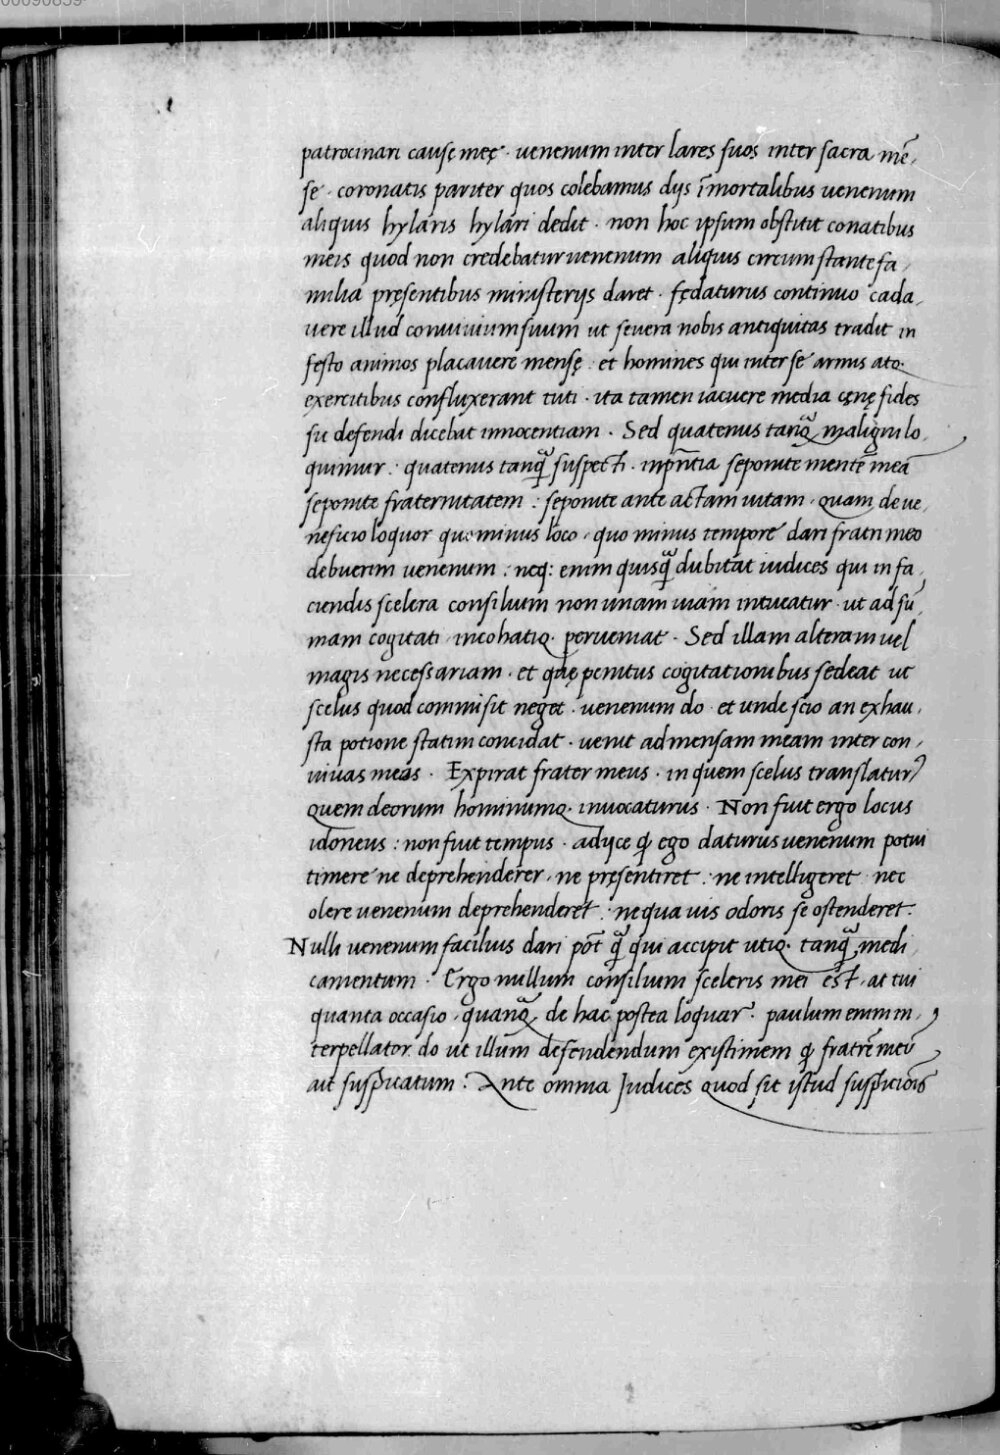 00090859
patrocinari causę meę · uenenum inter lares suos inter sacra mē,
sę · coronatis pariter quos colebamus dijs īmortalibus uenenum
aliquis hylaris hylari dedit · non hoc ipsum obstitit conatibus
meis quod non credebatur uenenum aliquis circumstante fa,
milia pręsentibus ministerijs daret · fędaturus continuo cada,
uere illud conuiuium suum ut seuera nobis antiquitas tradit in
festo animos placauere mensę · et homines qui inter se armis atq·
exercitibus confluxerant tuti · ita tamen iacuere media cęnę fides
sit defendi dicebat innocentiam · Sed quatenus tanq̃ maligni lo,
quimur : quatenus tanq̃ suspecti · inpn̄tia seponite mentē meā
seponite fraternitatem : seponite ante actam uitam · quam de ue,
neficio loquor quo minus loco · quo minus tempore dari fratri meo
debuerim uenenum : neq: enim quisq̃ dubitat iudices qui in fa,
ciendis scelera consilium non unam uiam intueatur · ut ad sū,
mam cogitati · incohatiq· perueniat · Sed illam alteram uel
magis necessariam · et quę penitus cogitationibus sedeat ut
scelus quod commisit neget · uenenum do · et unde scio an exhau,
sta potione statim concidat · uenit ad mensam meam inter con,
uiuas meas · Expirat frater meus · in quem scelus translatur9
quem deorum hominumq· inuocaturus · Non fuit ergo locus
idoneus : non fuit tempus · adijce ꝙ ego daturus uenenum potui
timere ne deprehenderer · ne pręsentiret : ne intelligeret nec
olere uenenum deprehenderet : ne qua uis odoris se ostenderet ·
Nulli uenenum facilius dari pōt q̃ qui accipit utiq· tanq̃ medi
camentum · Ergo nullum consilium sceleris mei est · at tui
quanta occasio · quanq̃ de hac postea loquar · paulum enim in,
terpellator do ut illum defendendum existimem ꝙ fratrē meū
ait suspicatum : Ante omnia Iudices quod sit istud suspiciōis